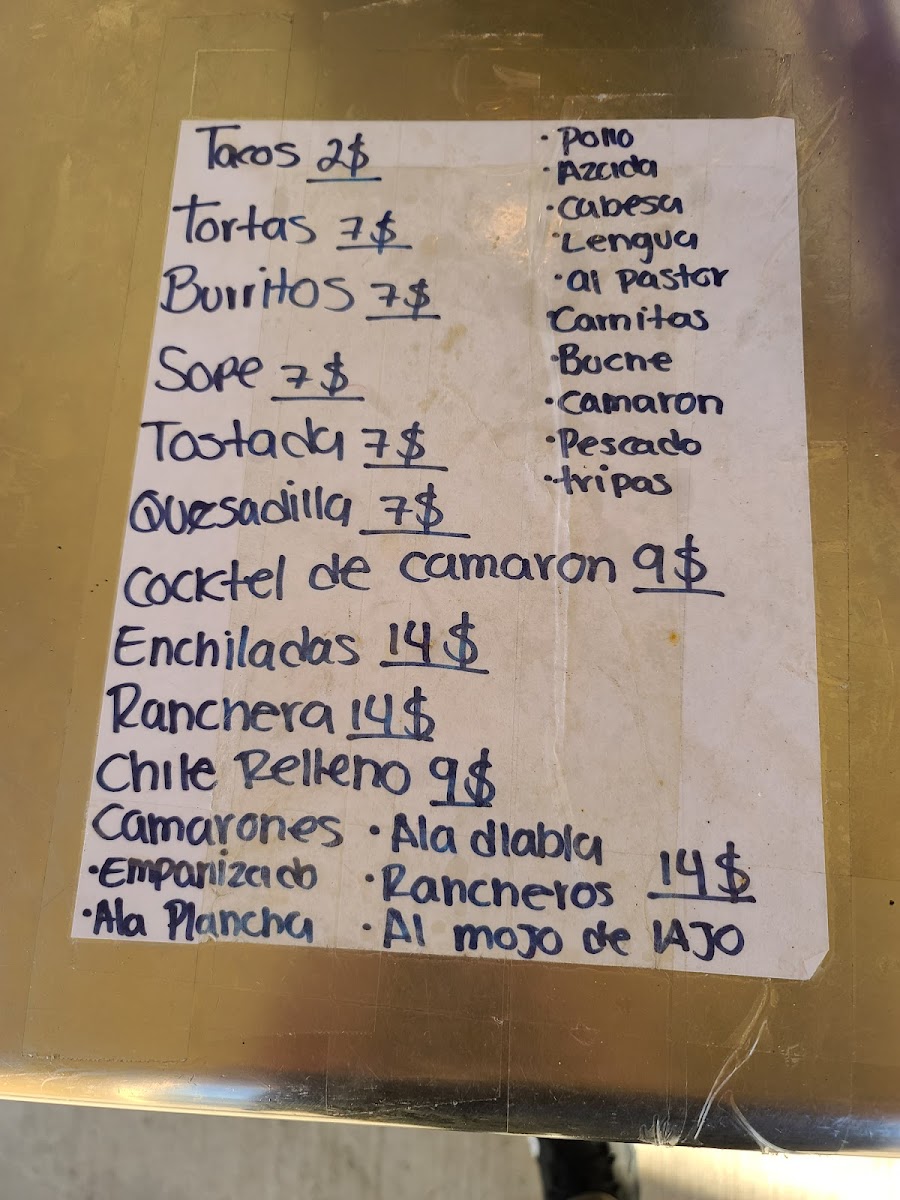 Tacos 2$
Tortas 7$
Burritos 7$
Sope 7$
Tostada 7$
Quesadilla 7$
Cocktel de camaron 9$
Enchiladas 14$
Ranchera 14$
Chile Relleno 9$
Camarones • Ala diabla
• Empanizado • Rancheros 14$
• Ala Plancha • Al mojo de lAJO
• Pollo
• Azada
• Cabesa
• Lengua
• al pastor
Carnitas
• Buche
• camaron
• Pescado
• tripas